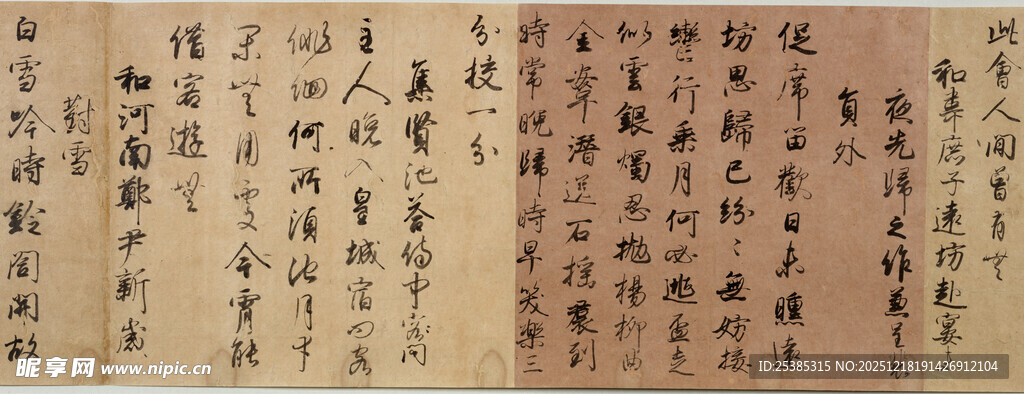 此會人間曾有無
和李庶子遠坊赴宴
夜先歸之作兼呈裴
員外
促席留歡日未曛遠
坊思歸已紛〻無妨接
轡行乘月何必逃盃走
似雲銀燭忍拋楊柳曲
金鞍潛送石榴裙到
時常晚歸時早笑樂三
分校一分
集賢池答侍中問
主人晚入皇城宿問客
徘徊何所須池月幸
閑無用處今宵能
借客遊無
和河南鄭尹新歲
對雪
白雪吟時鈴閣開故
昵享网 www.nipic.cn
ID:25385315 NO:20251218191426912104